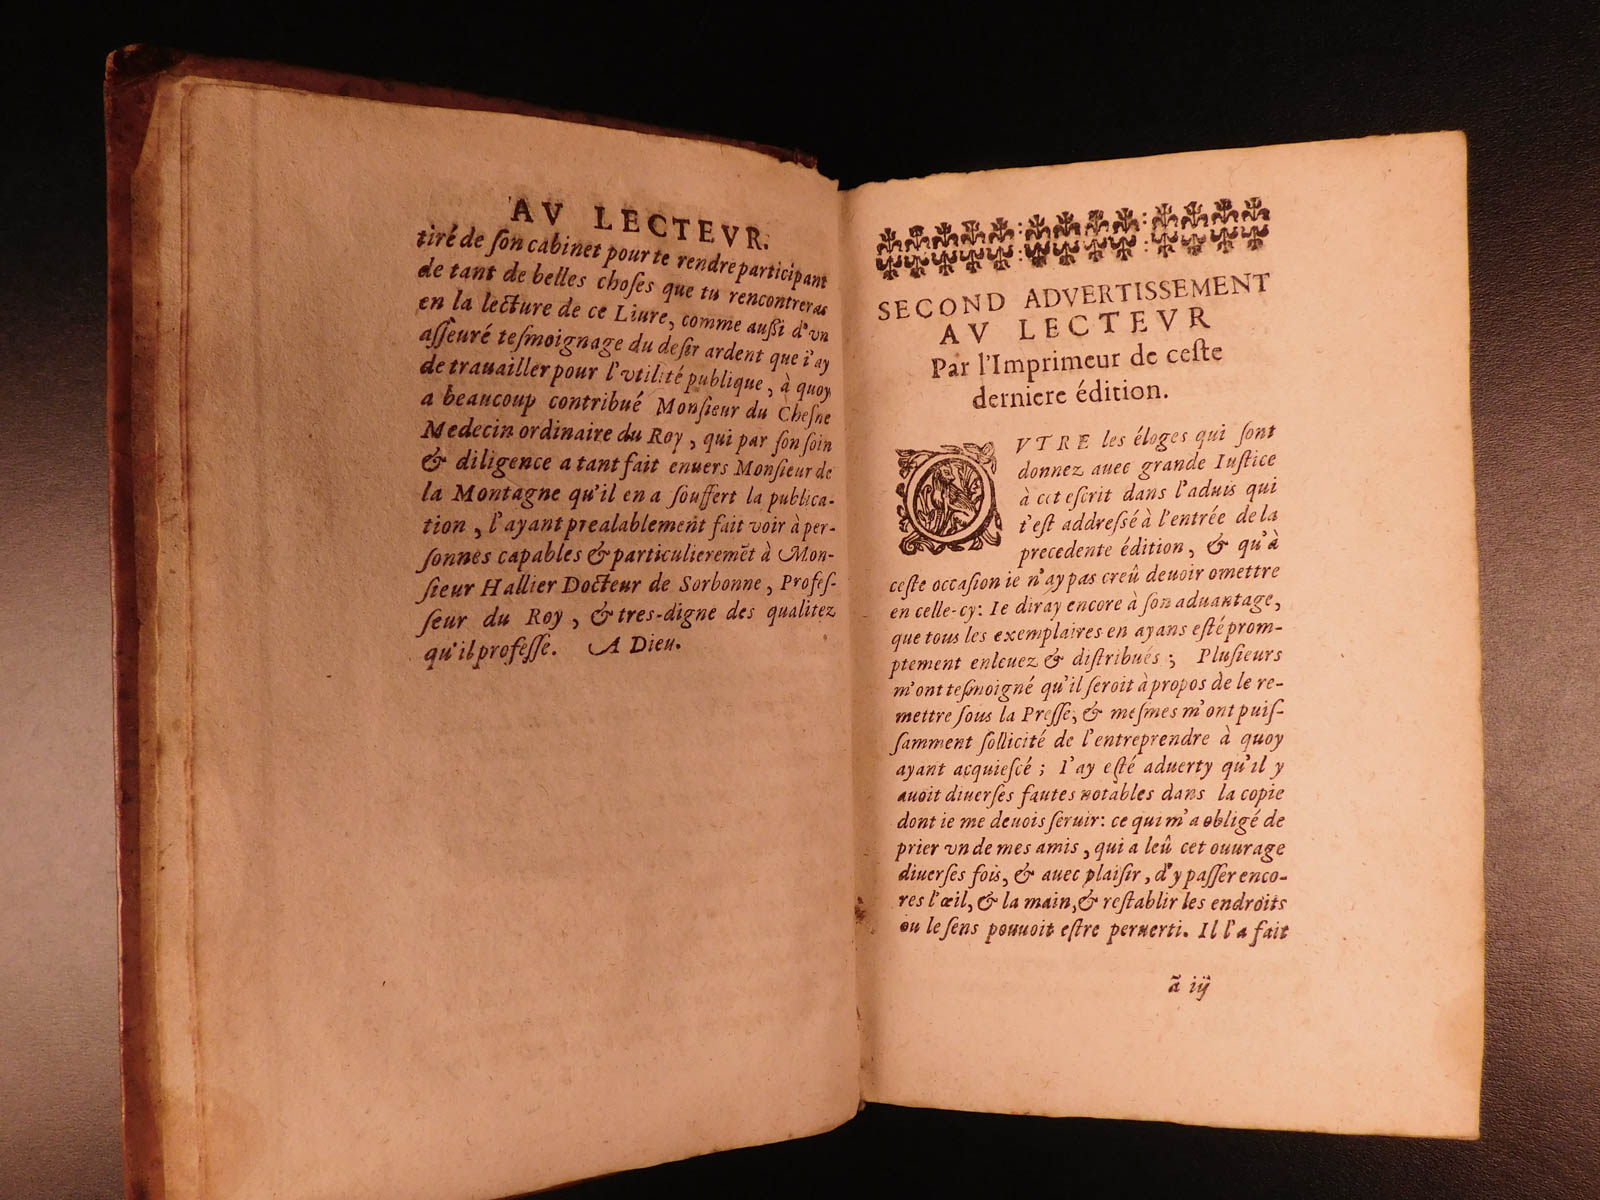 AV LECTEVR.
tiré de ſon cabinet pour te rendre participant
de tant de belles choſes que tu rencontreras
en la lecture de ce Liure, comme auſsi d'vn
aſſeuré teſmoignage du deſir ardent que i'ay
de trauailler pour l'vtilité publique, à quoy
a beaucoup contribué Monſieur du Cheſne
Medecin ordinaire du Roy, qui par ſon ſoin
& diligence a tant fait enuers Monſieur de
la Montagne qu'il en a ſouffert la publica-
tion, l'ayant prealablement fait voir à per-
ſonnes capables & particulieremẽt à Mon-
ſieur Hallier Docteur de Sorbonne, Profeſ-
ſeur du Roy, & tres-digne des qualitez
qu'il profeſſe. A Dieu.
SECOND ADVERTISSEMENT
AV LECTEVR
Par l'Imprimeur de ceſte
derniere édition.
OVTRE les éloges qui ſont
donnez auec grande Iuſtice
à cet eſcrit dans l'aduis qui
t'eſt addreſsé à l'entrée de la
precedente édition, & qu'à
ceſte occaſion ie n'ay pas creû deuoir omettre
en celle-cy: Ie diray encore à ſon aduantage,
que tous les exemplaires en ayans eſté prom-
ptement enleuez & diſtribués; Pluſieurs
m'ont teſmoigné qu'il ſeroit à propos de le re-
mettre ſous la Preſſe, & meſmes m'ont puiſ-
ſamment ſollicité de l'entreprendre à quoy
ayant acquieſcé; I'ay eſté aduerty qu'il y
auoit diuerſes fautes notables dans la copie
dont ie me deuois ſeruir: ce qui m'a obligé de
prier vn de mes amis, qui a leû cet ouurage
diuerſes fois, & auec plaiſir, d'y paſſer enco-
res l'œil, & la main, & reſtablir les endroits
ou le ſens pouuoit eſtre peruerti. Il l'a fait
ã iij